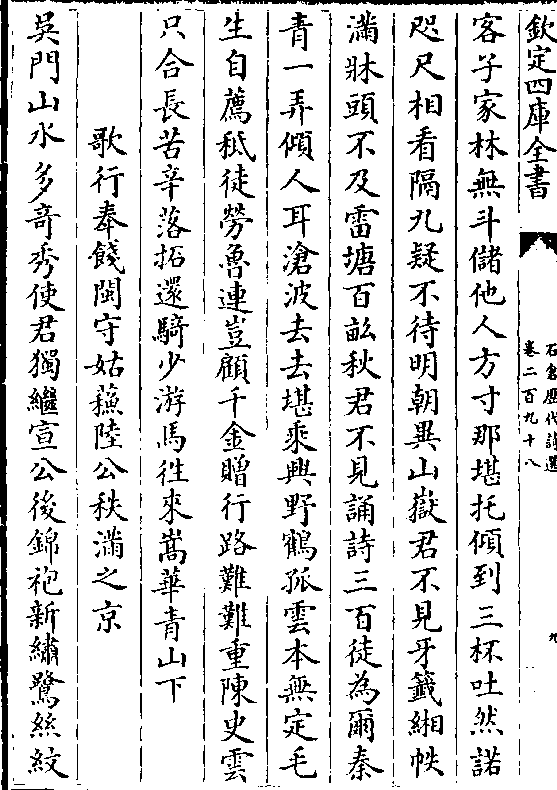 欽定四庫全書
石倉歷代詩選
卷二百九十八
九
客子家林無斗儲他人方寸那堪托傾到三杯吐然諾
咫尺相看隔九疑不待明朝異山嶽君不見牙籤緗帙
滿牀頭不及雷塘百畝秋君不見誦詩三百徒為爾秦
青一弄傾人耳滄波去去堪乘興野鶴孤雲本無定毛
生自薦秪徒勞魯連豈顧千金贈行路難難重陳史雲
只合長苦辛落拓還騎少游馬徃來嵩華青山下
歌行奉餞閩守姑蘓陸公秩滿之京
吳門山水多奇秀使君獨繼宣公後錦袍新繡鷺絲紋